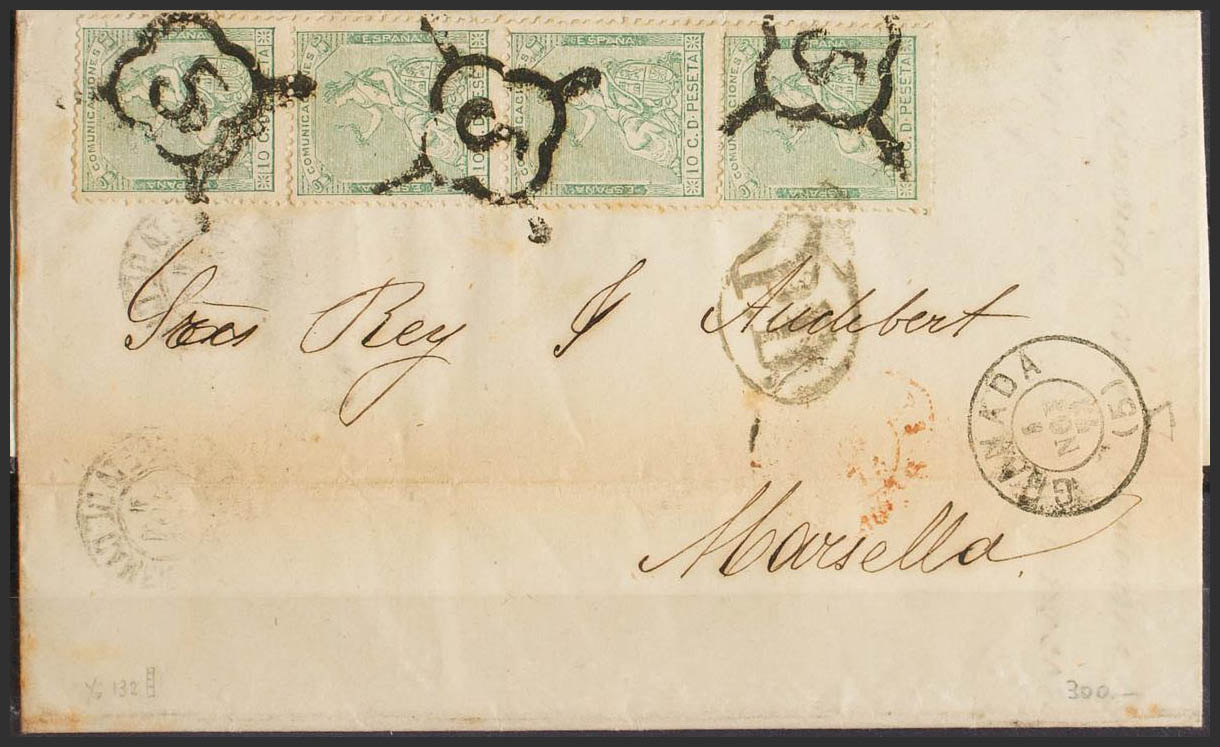 COMUNICACIONES ESPAÑA 10 C. D. PESETA ESPAÑA
COMUNICACIONES ESPAÑA 10 C. D. PESETA ESPAÑA
COMUNICACIONES ESPAÑA 10 C. D. PESETA ESPAÑA
COMUNICACIONES ESPAÑA 10 C. D. PESETA ESPAÑA
5
5
5
Sres Rey y Audibert
P.D.
GRANADA (5)
1 NOE
Marsella
132
300.—